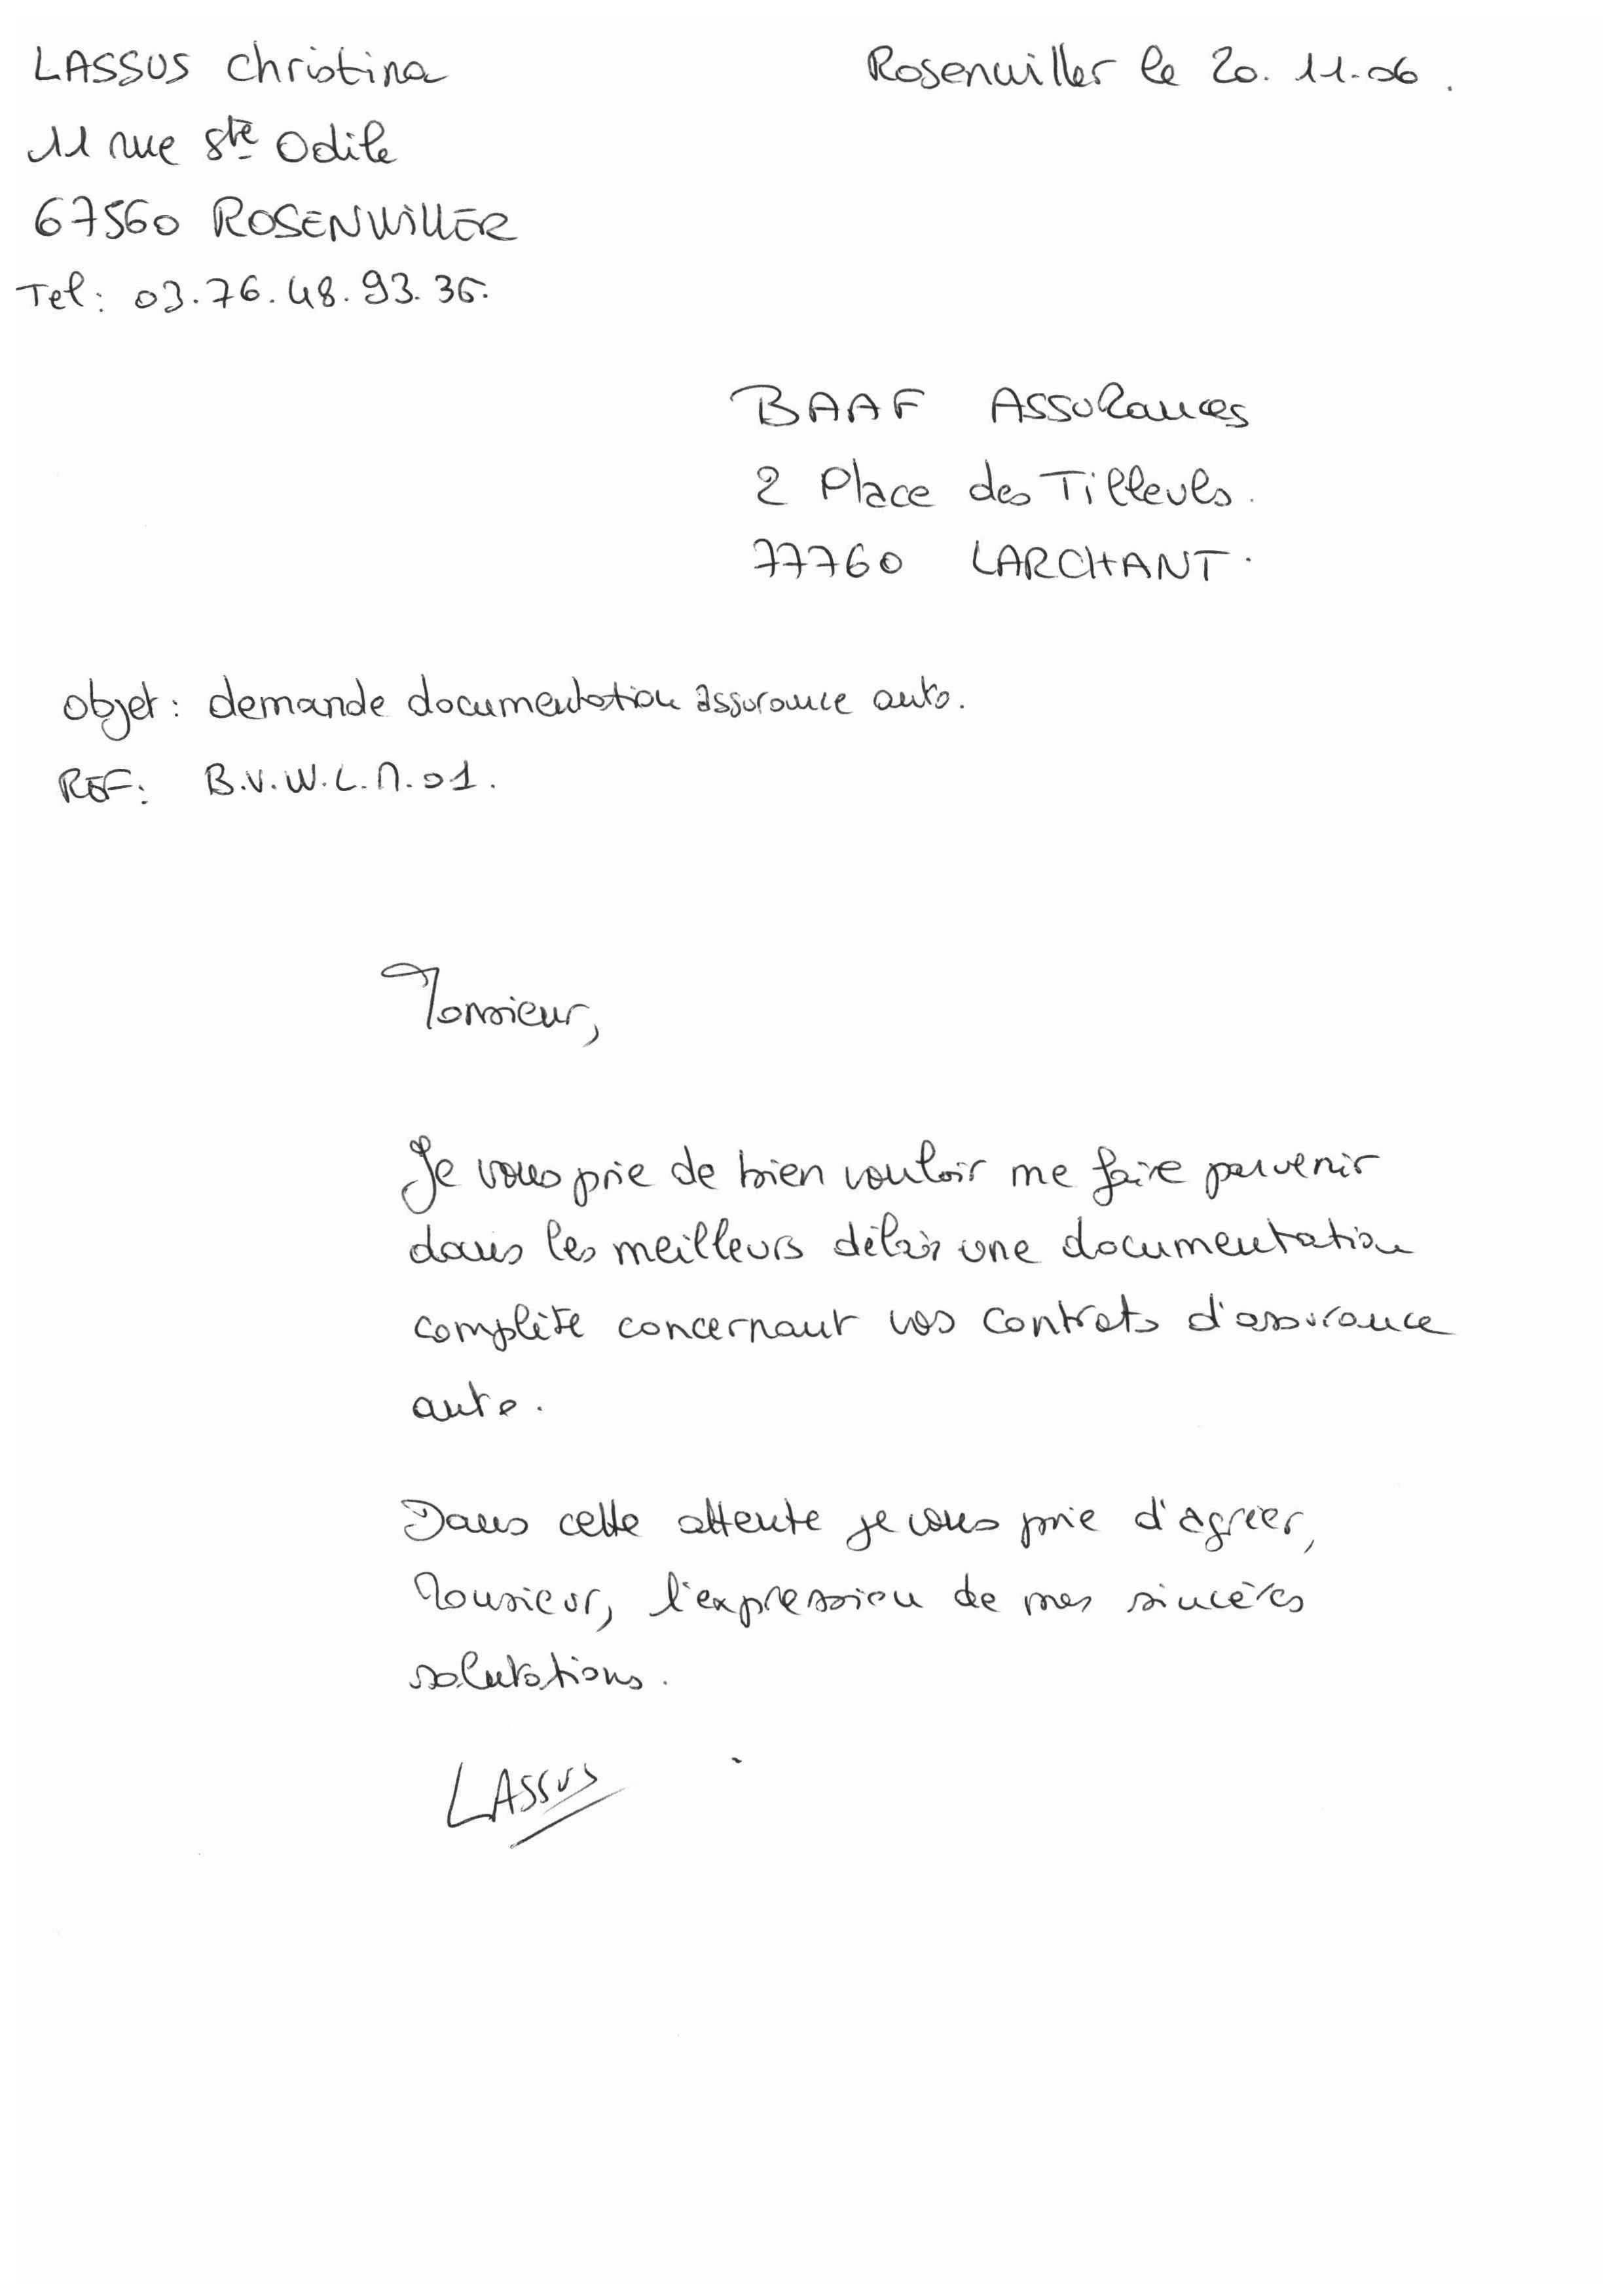 LASSUS Christina
Rosenwiller le 20.11.06.
11 rue Ste Odile
67560 ROSENWILLER
Tel: 03.76.48.93.36.
BAAF Assurances
2 Place des Tilleuls.
77760 LARCHANT.
objet: demande documentation assurance auto.
REF: B.V.W.L.M.01.
Monsieur,
Je vous prie de bien vouloir me faire parvenir
dans les meilleurs délais une documentation
complète concernant vos contrats d'assurance
auto.
Dans cette attente je vous prie d'agréer,
Monsieur, l'expression de mes sincères
salutations.
LASSUS